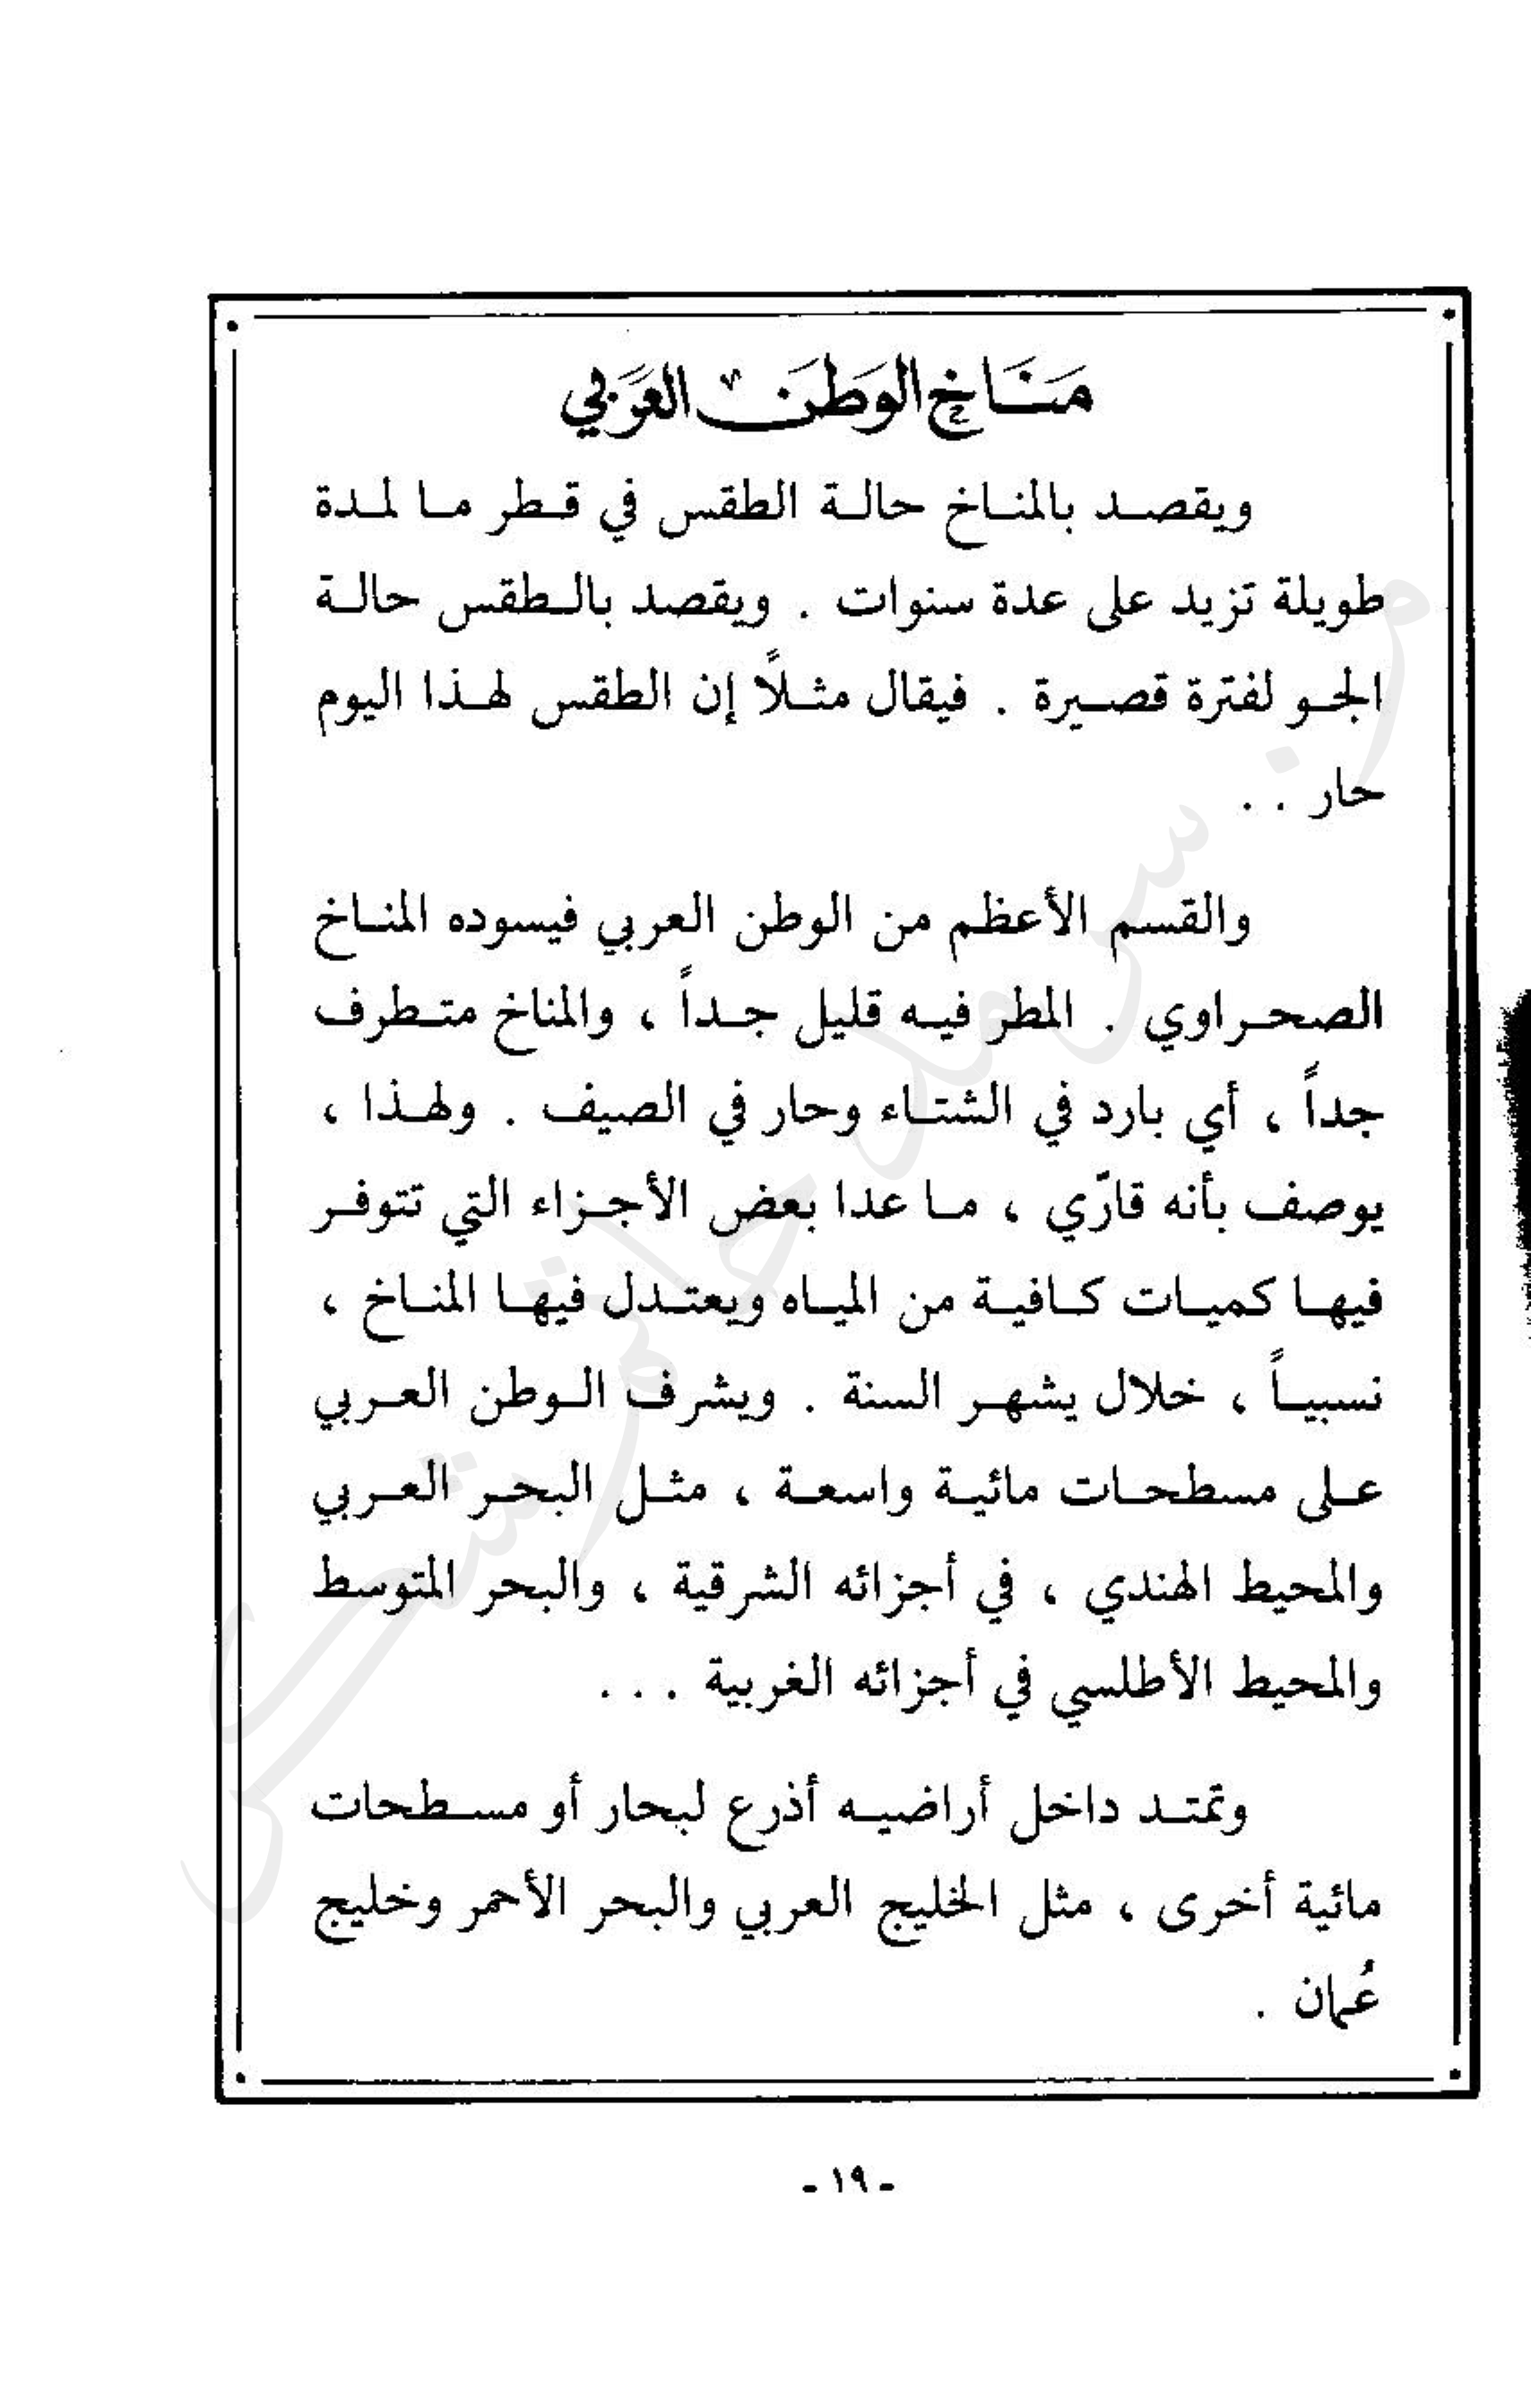 مناخ الوطن العربي
ويقصد بالمناخ حالة الطقس في قطر ما لمدة
طويلة تزيد على عدة سنوات . ويقصد بالطقس حالة
الجو لفترة قصيرة . فيقال مثلاً إن الطقس لهذا اليوم
حار . .
والقسم الأعظم من الوطن العربي فيسوده المناخ
الصحراوي . المطر فيه قليل جداً ، والمناخ متطرف
جداً ، أي بارد في الشتاء وحار في الصيف . ولهذا ،
يوصف بأنه قارّي ، ما عدا بعض الأجزاء التي تتوفر
فيها كميات كافية من المياه ويعتدل فيها المناخ ،
نسبياً ، خلال يشهر السنة . ويشرف الوطن العربي
على مسطحات مائية واسعة ، مثل البحر العربي
والمحيط الهندي ، في أجزائه الشرقية ، والبحر المتوسط
والمحيط الأطلسي في أجزائه الغربية . . .
وتمتد داخل أراضيه أذرع لبحار أو مسطحات
مائية أخرى ، مثل الخليج العربي والبحر الأحمر وخليج
عُمان .
- ١٩ -